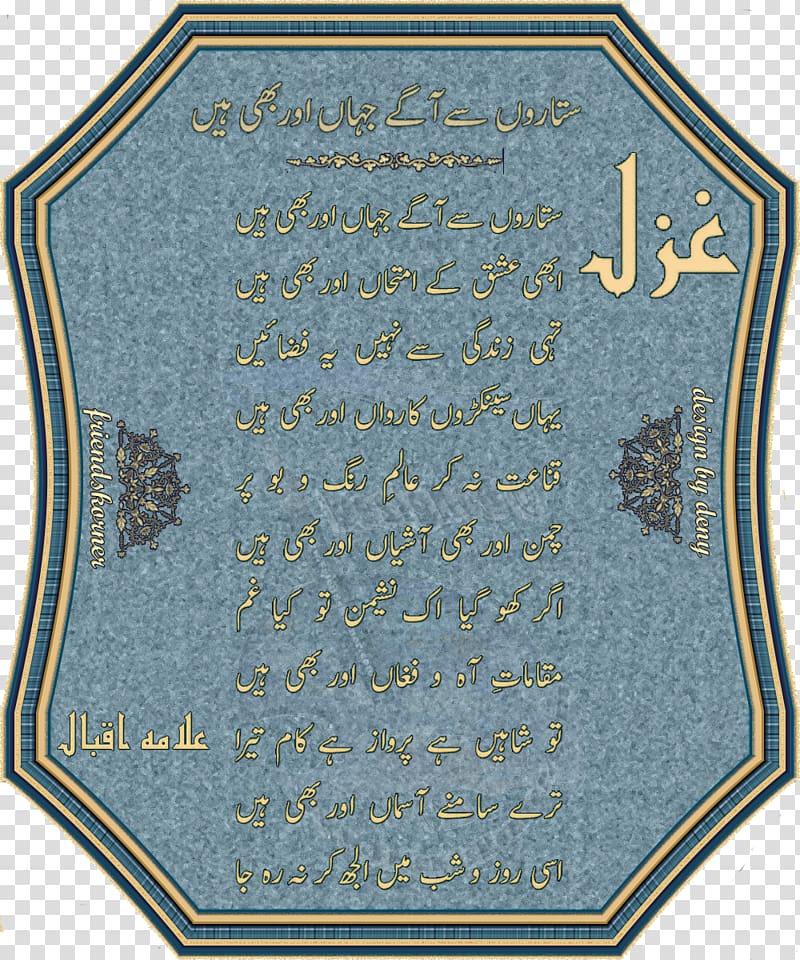 ستاروں سے آگے جہاں اور بھی ہیں
غزل
ستاروں سے آگے جہاں اور بھی ہیں
ابھی عشق کے امتحاں اور بھی ہیں
تہی زندگی سے نہیں یہ فضائیں
یہاں سینکڑوں کارواں اور بھی ہیں
قناعت نہ کر عالمِ رنگ و بو پر
چمن اور بھی آشیاں اور بھی ہیں
اگر کھو گیا اک نشیمن تو کیا غم
مقاماتِ آہ و فغاں اور بھی ہیں
تو شاہیں ہے پرواز ہے کام تیرا
ترے سامنے آسماں اور بھی ہیں
اسی روز و شب میں الجھ کر نہ رہ جا
علامہ اقبال
design by deny
friendskorner